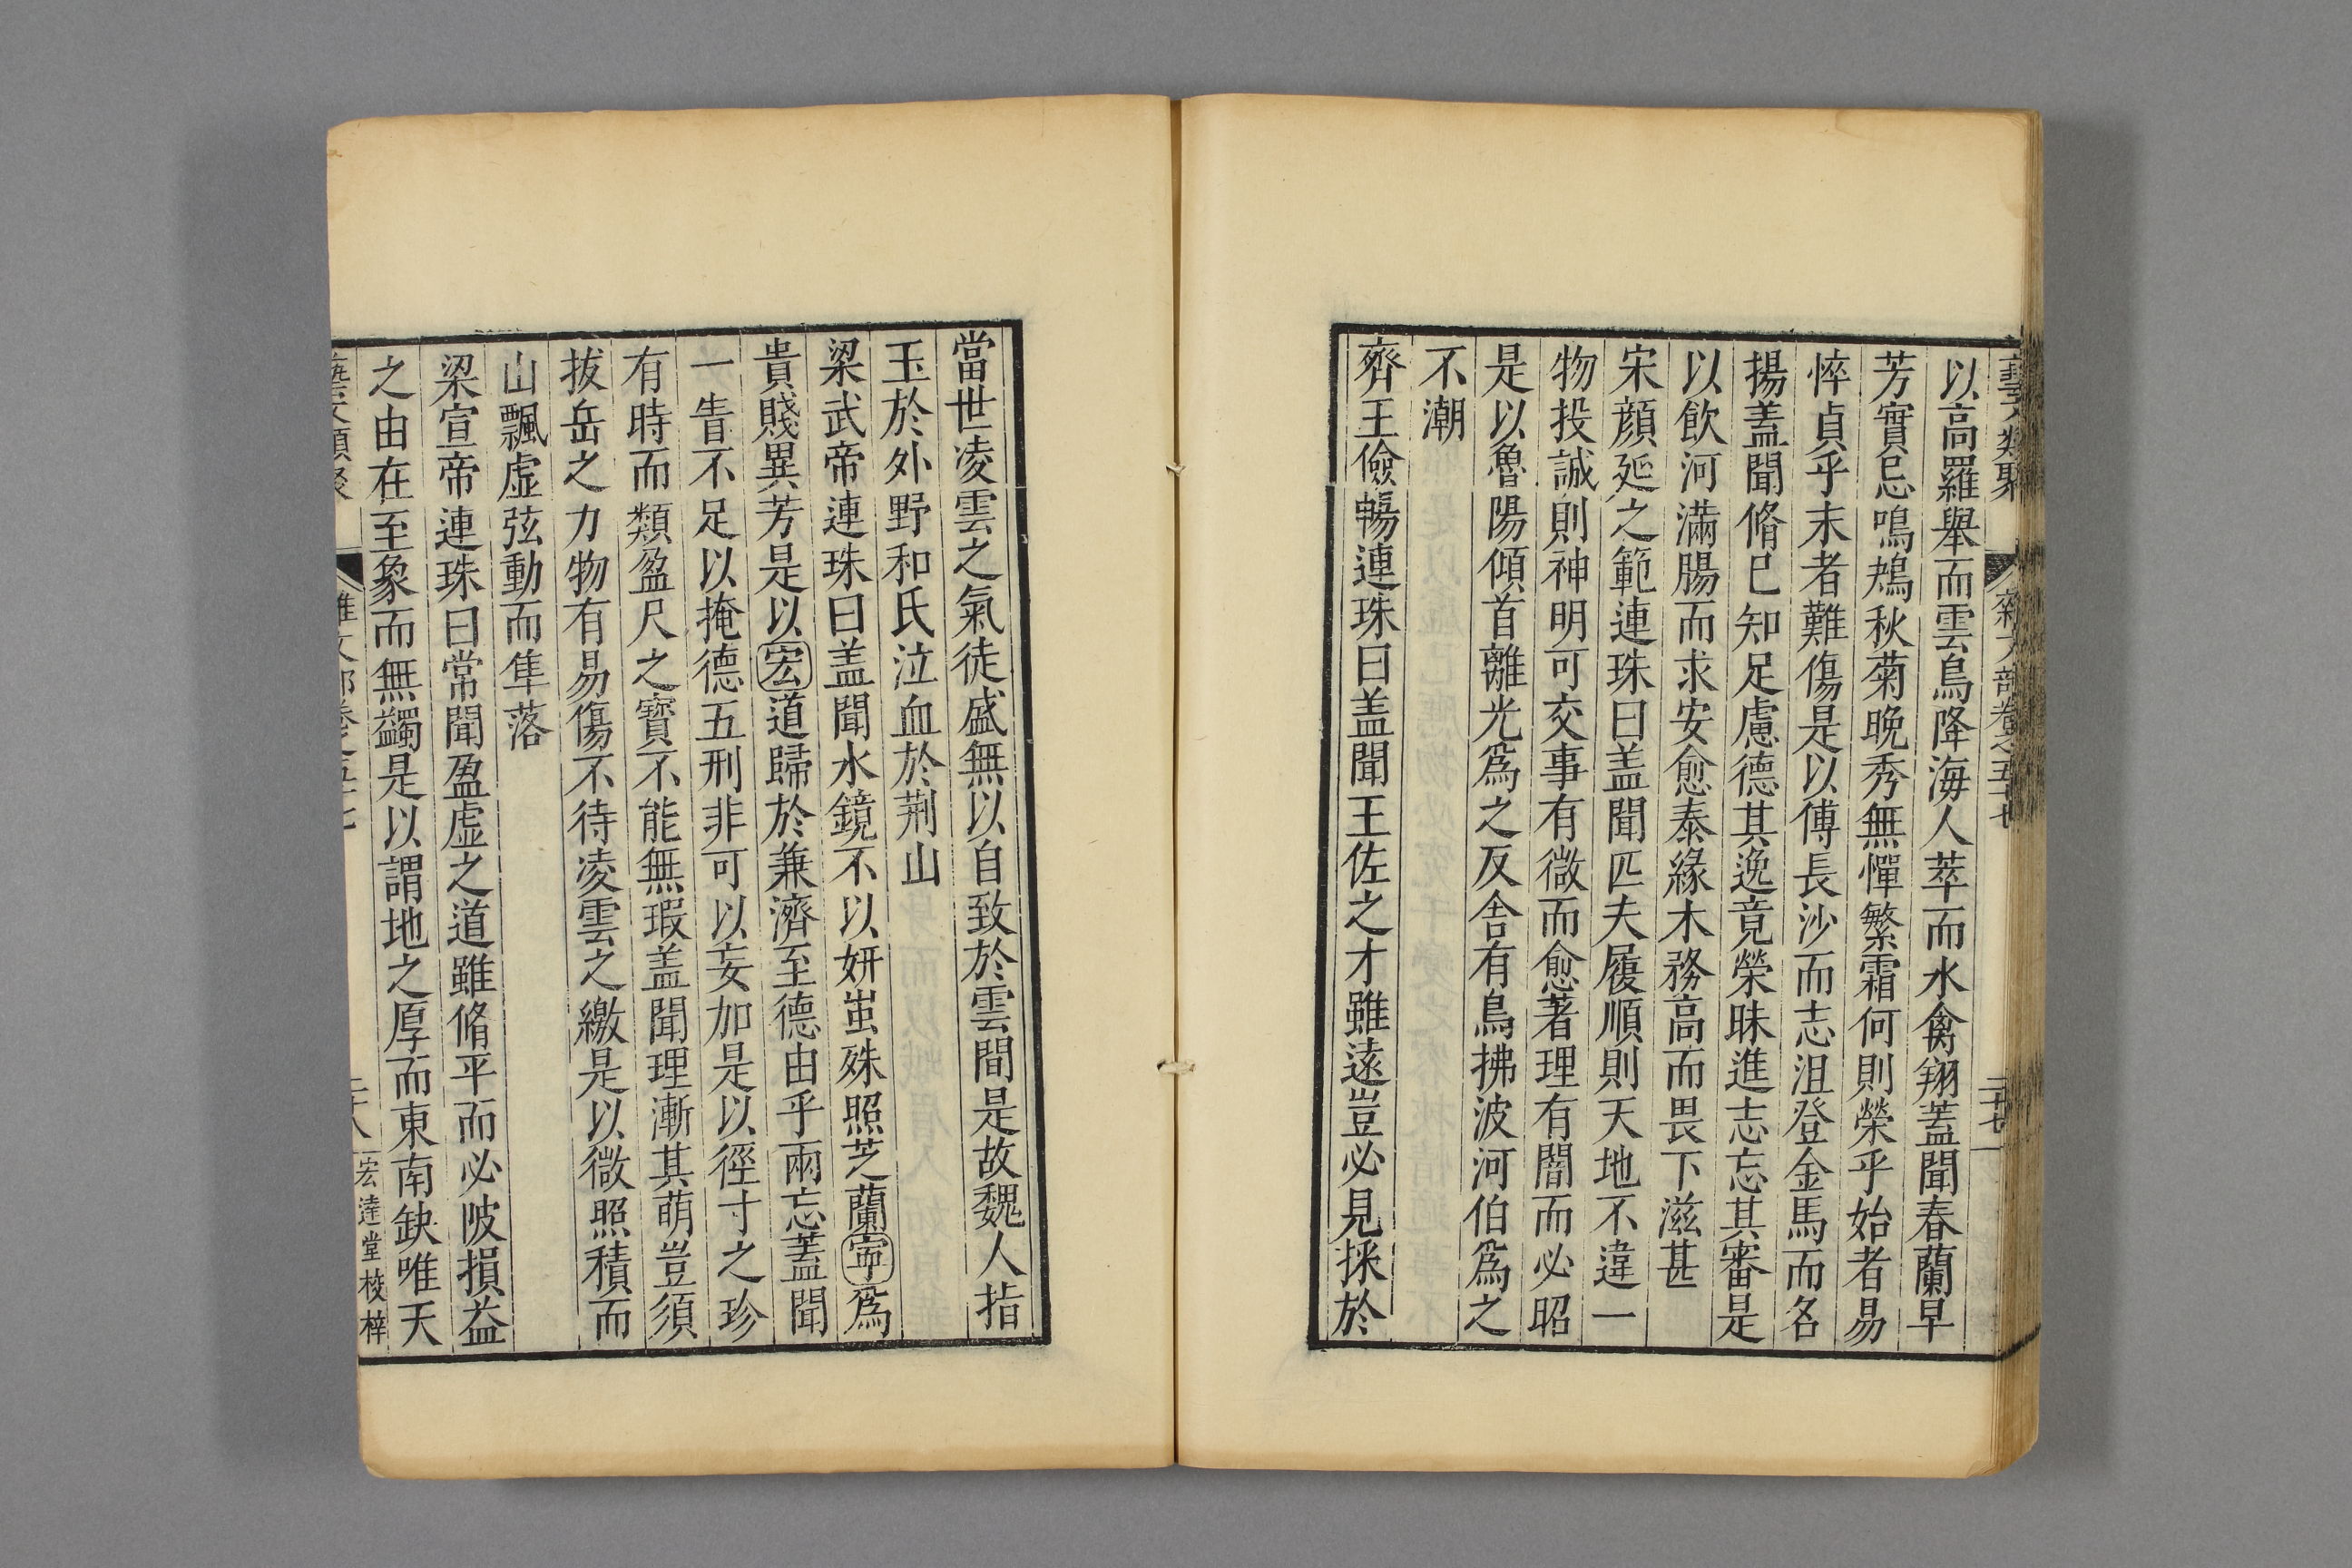 藝文類聚 雜文部卷之五十七 二十七
以高羅舉而雲鳥降海人萃而水禽翔蓋聞春蘭早
芳實忌鳴鴂秋菊晚秀無憚繁霜何則榮乎始者易
悴貞乎末者難傷是以傅長沙而志沮登金馬而名
揚盖聞脩己知足慮德其逸竟榮昧進志忘其審是
以飲河滿腸而求安愈泰緣木務高而畏下滋甚
宋顔延之範連珠曰盖聞匹夫履順則天地不違一
物投誠則神明可交事有微而愈著理有闇而必昭
是以魯陽傾首離光爲之反舍有鳥拂波河伯爲之
不潮
齊王儉暢連珠曰盖聞王佐之才雖遠豈必見採於
當世凌雲之氣徒盛無以自致於雲間是故魏人指
玉於外野和氏泣血於荆山
梁武帝連珠曰盖聞水鏡不以妍蚩殊照芝蘭寧爲
貴賤異芳是以宏道歸於兼濟至德由乎兩忘蓋聞
一眚不足以掩德五刑非可以妄加是以徑寸之珍
有時而類盈尺之寶不能無瑕盖聞理漸其萌豈須
拔岳之力物有易傷不待凌雲之繳是以微照積而
山飄虛弦動而隼落
梁宣帝連珠曰常聞盈虛之道雖脩平而必陂損益
之由在至象而無蠲是以謂地之厚而東南缺唯天
藝文類聚 雜文部卷之五十七 二十八 宏達堂校梓